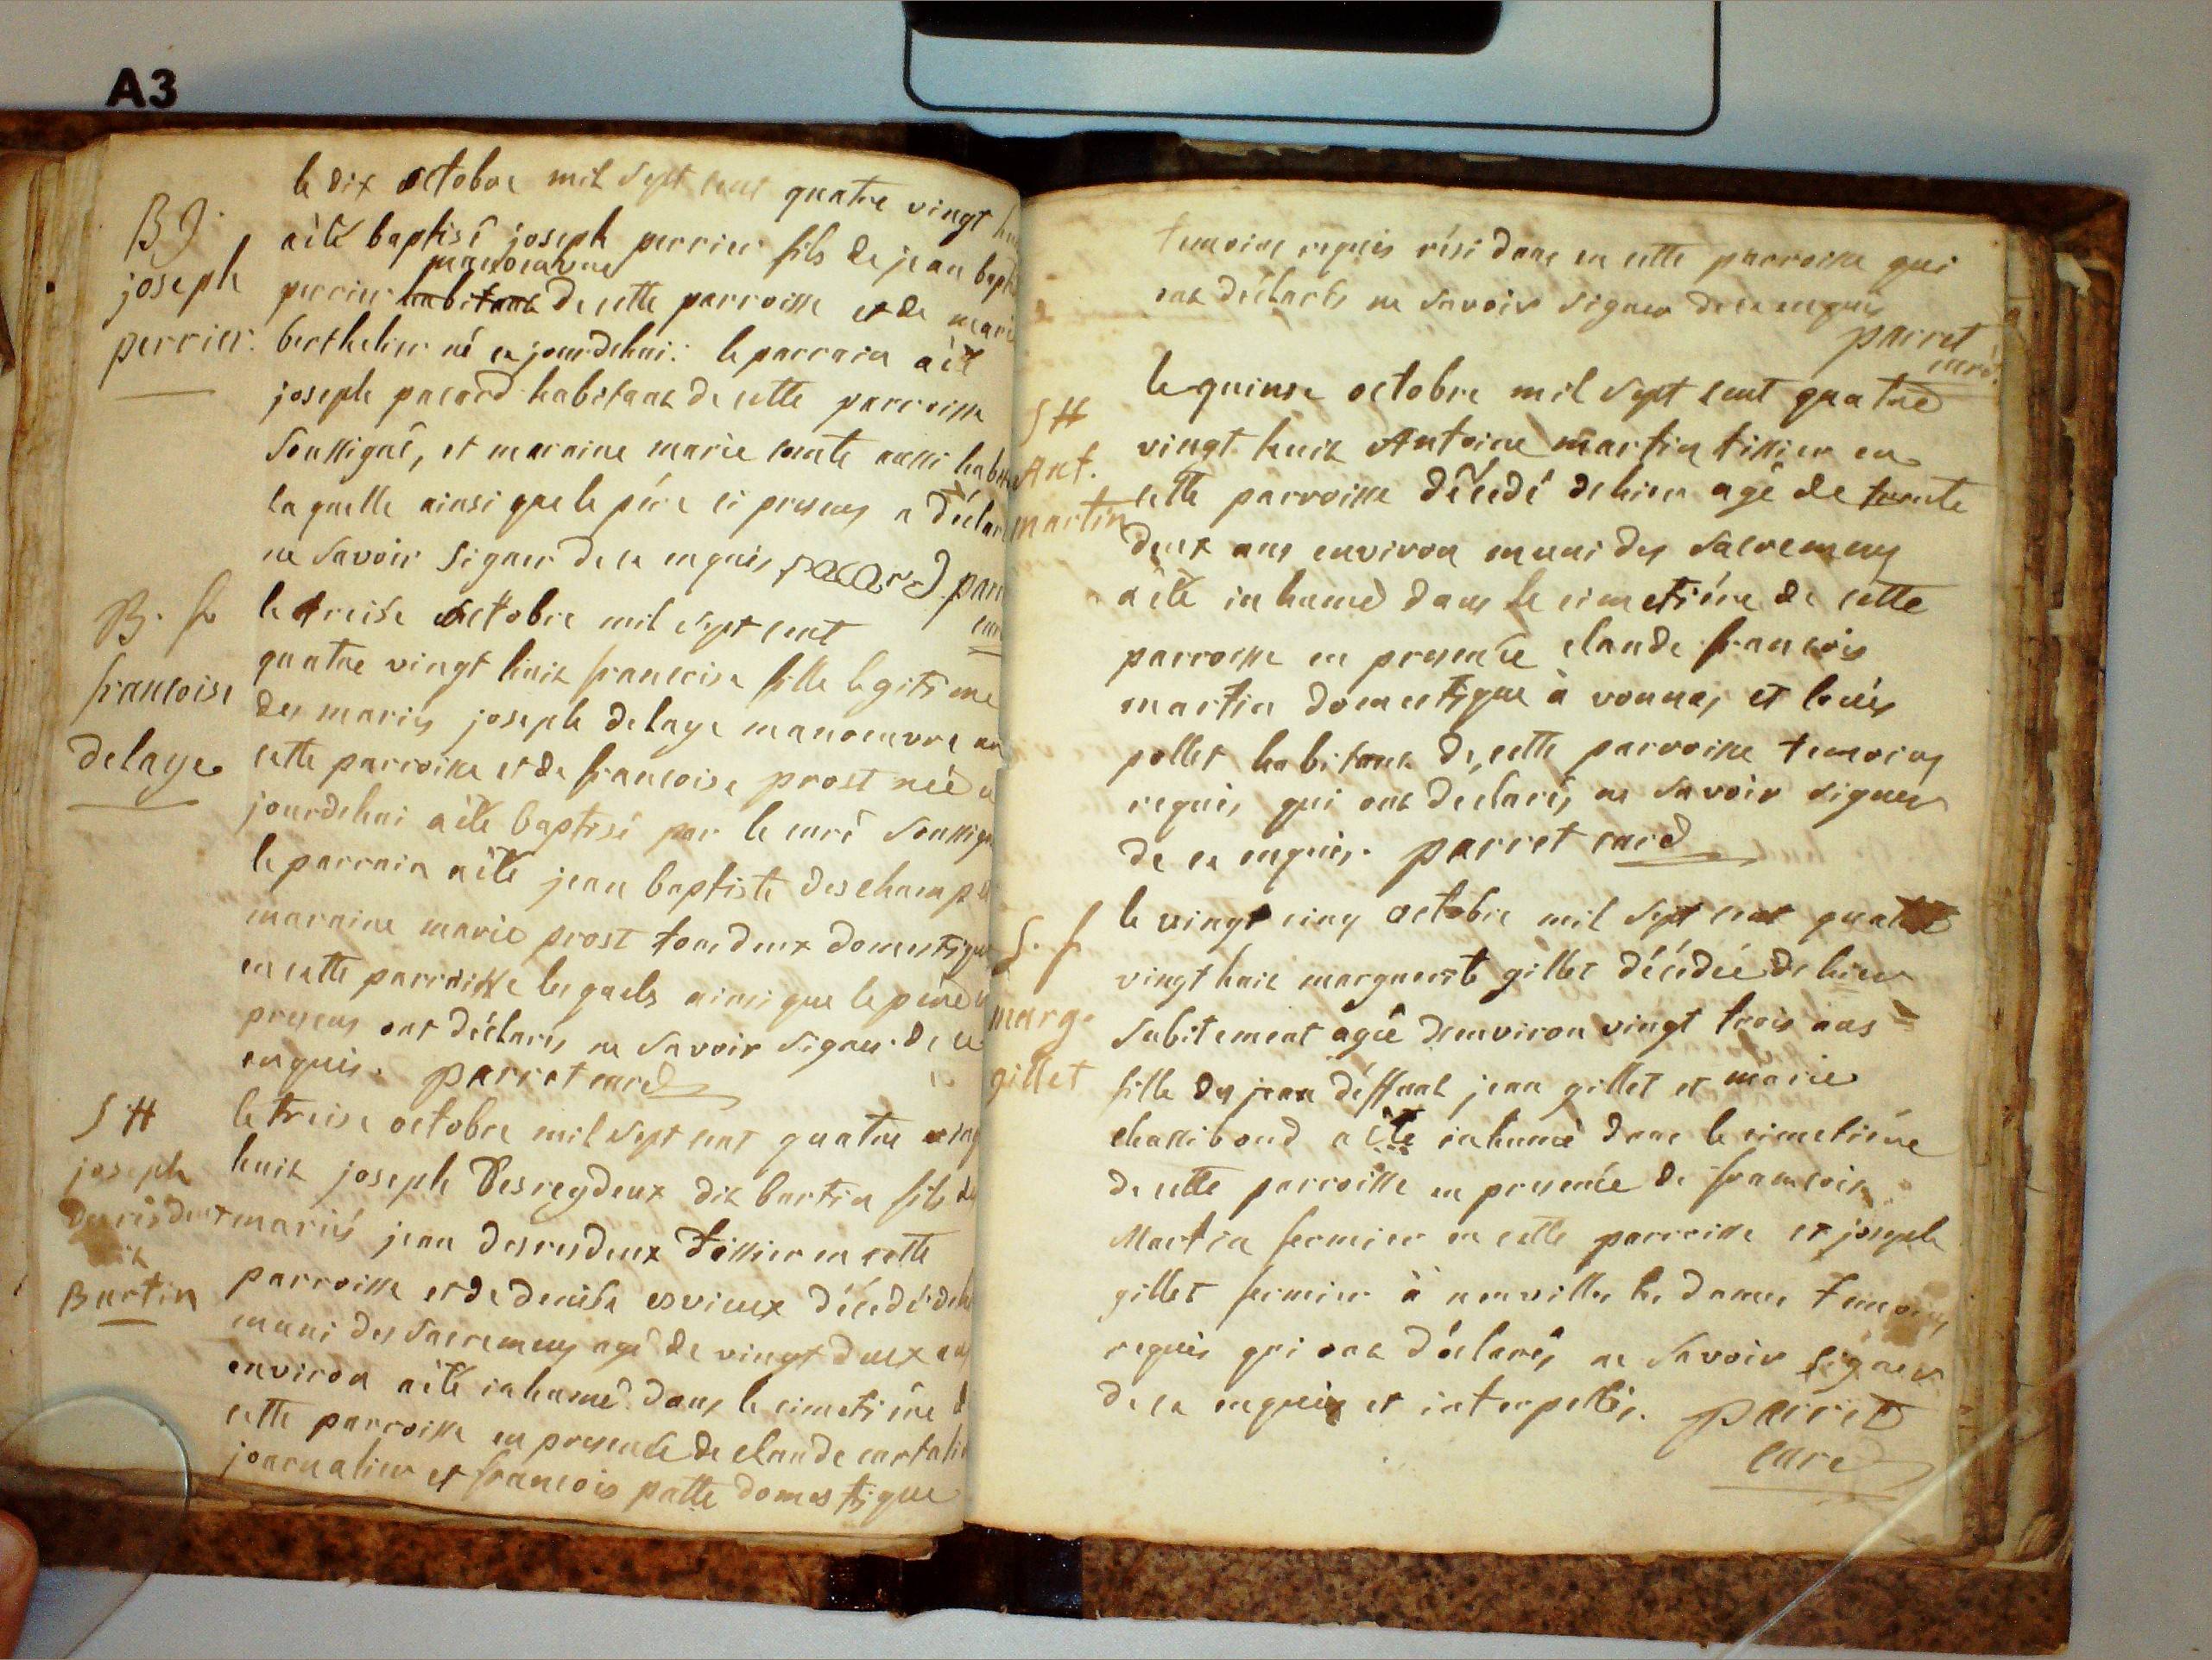 A3
le dix octobre mil sept cent quatre vingt
B J.
joseph
perrier.
aété baptisé joseph perrier fils de jean bapt
manoeuvre
perrier habitant de cette parroisse et de mari
berthelier né cejourdehui: le parrain aét
joseph pacard habitant de cette parroisse
Soussigné, et maraine marie comte aussi habit
laquelle ainsi que le pére ci presens a déclar
ne savoir signer de ce enquis pacard parr
cur
B. f
francoise
delaye
le treise octobre mil sept cent
quatre vingt huit francoise fille legitime
des mariés joseph delaye manoeuvre en
cette parroisse et de francoise prost née
jourdehui aété baptisé par le curé soussig
le parrain aété jean baptiste deschamps
maraine marie prost tous deux domestiqu
en cette parroisse lesquels ainsi que le pére
presens ont déclarés ne savoir signer de ce
enquis. parret curé
S H
joseph
desrisdeux
dit
Burtin
le treise octobre mil sept cent quatre ving
huit joseph Desreydeux dit burtin fils de
mariés jean desresdeux tissier en cette
parroisse et de denise esvieux décédé de
muni des sacremens agé de vingt deux ans
environ aété inhumé dans le cimetiére d
cette parroisse en presence de claude curtali
journalier et francois patte domestique
temoins requis résidans en cette parroisse qui
ont déclarés ne savoir signer de ce enquis
parret
curé
S H
Ant.
martin
le quinse octobre mil sept cent quatre
vingt huit Antoine martin tissier en
cette parroisse décédé dehier agé de trente
deux ans environ muni des sacremens
aété inhumé dans le cimetiére de cette
parroisse en presence claude francois
martin domestique à vonnas et louis
pollet habitant de cette parroisse temoins
requis qui ont declarés ne savoir signer
de ce enquis. parret curé
S. f
marg.
gillet
le vingt cinq octobre mil sept cent quatre
vingt huit marguerite gillet décédée dehier
subitement agée denviron vingt trois ans
fille de jean déffunt jean gillet et marie
chassiboud aété inhumé dans le cimetiére
de cette parroisse en presence de francois
Martin fermier en cette parroisse et joseph
gillet fermier à neuville les dames temoins
requis qui ont déclarés ne savoir signer
de ce enquis et interpellés. parret
curé